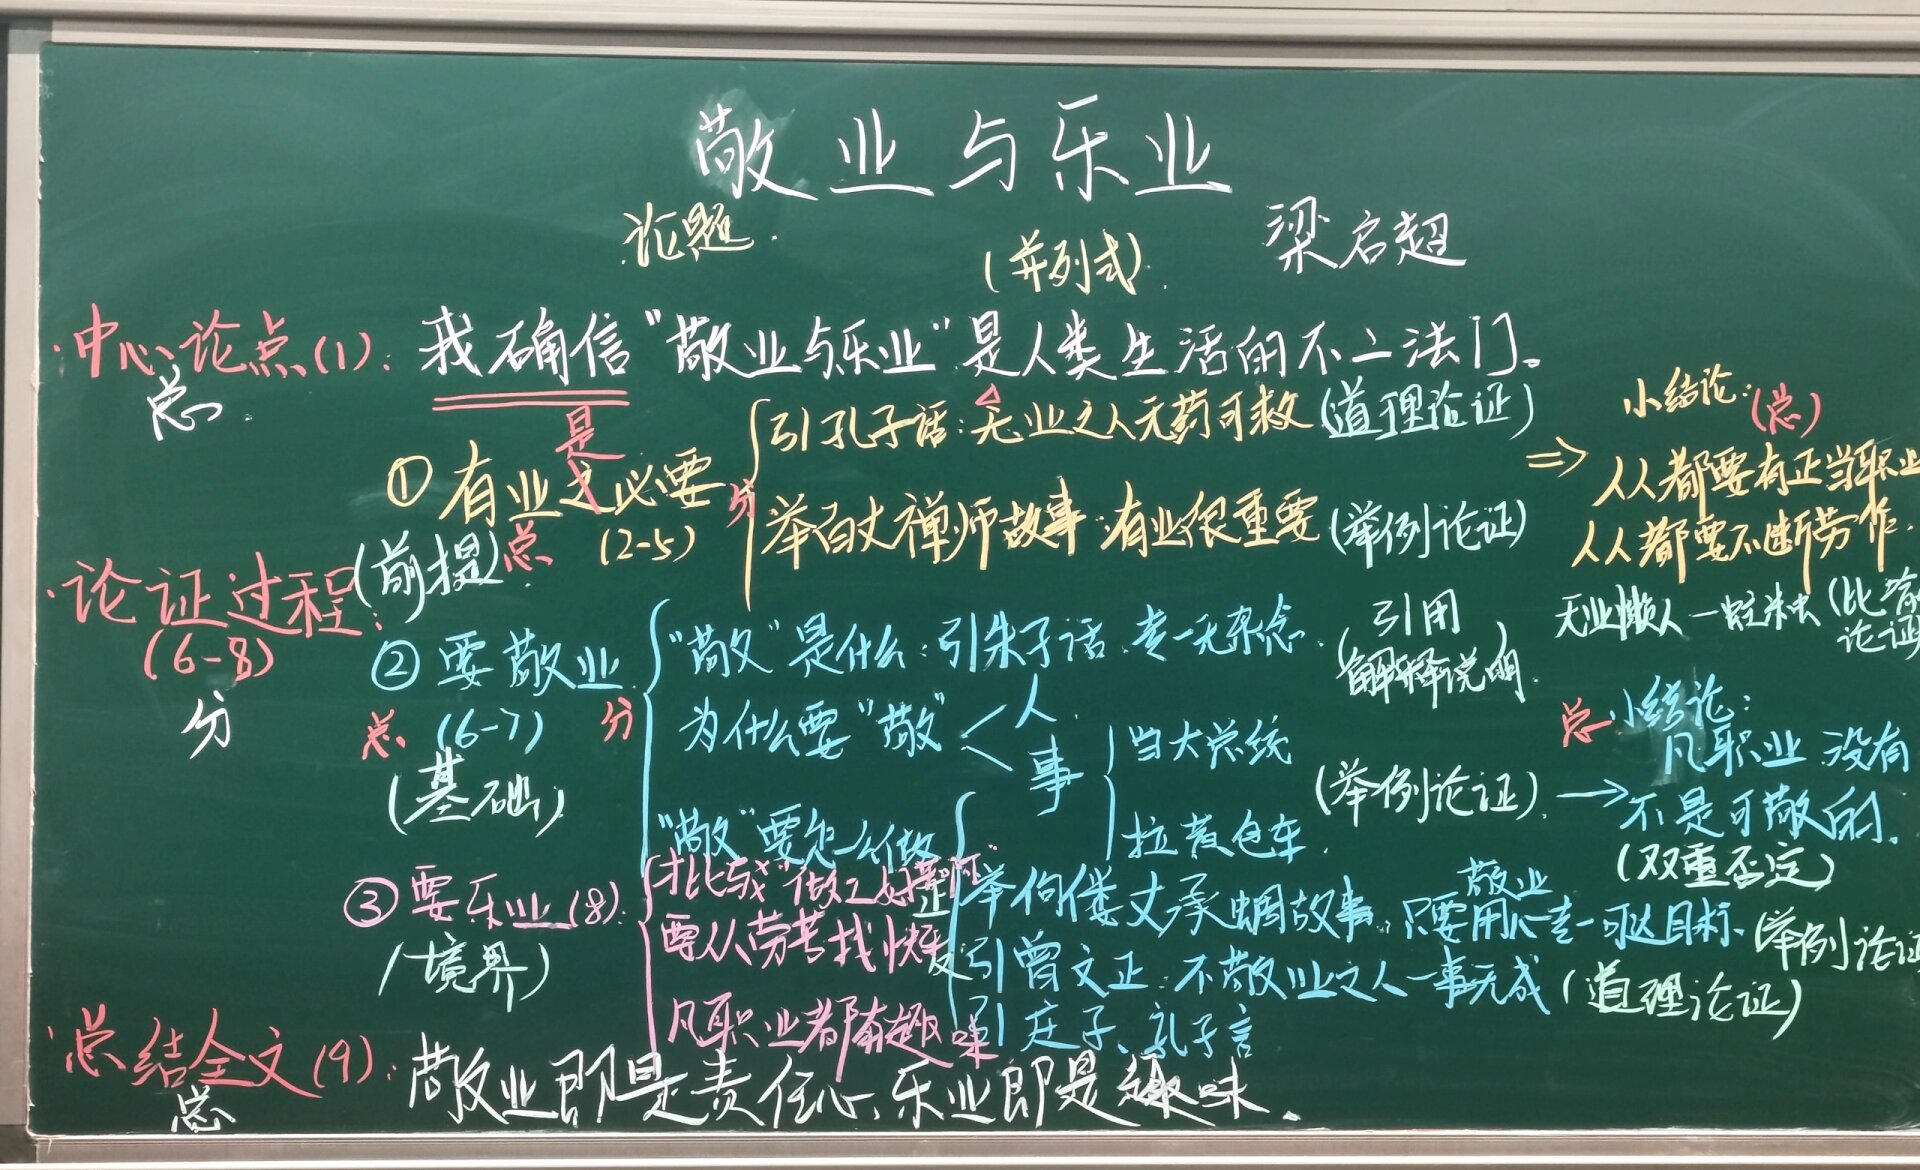 敬业与乐业
论题
(并列式)
梁启超
中心论点(1): 我确信“敬业与乐业”是人类生活的不二法门。
总
是
①有业之必要
(前提)
总
(2-5)
分
引孔子话:无业之人无药可救(道理论证)
举百丈禅师故事:有业很重要(举例论证)
⇒
小结论:
(总)
人人都要有正当职业
人人都要不断劳作.
无业懒人—蛀米虫(比喻
论证
论证过程:
(6-8)
分
②要敬业
总
(6-7)
分
(基础)
“敬”是什么:引朱子话:专一无杂念.
(引用
解释说明)
为什么要“敬”
人
事
当大总统
拉黄包车.
(举例论证)
→
总
小结论:
凡职业没有
不是可敬的.
(双重否定)
“敬”要怎么做
正
举佝偻丈承蜩故事:只要用心专一可达目标.
敬业
(举例论证
反
引曾文正:不敬业之人一事无成(道理论证)
引庄子、孔子言
③要乐业(8):
(境界)
要从劳苦找快
凡职业都有趣味
总结全文(9): 敬业即是责任心,乐业即是趣味.
总